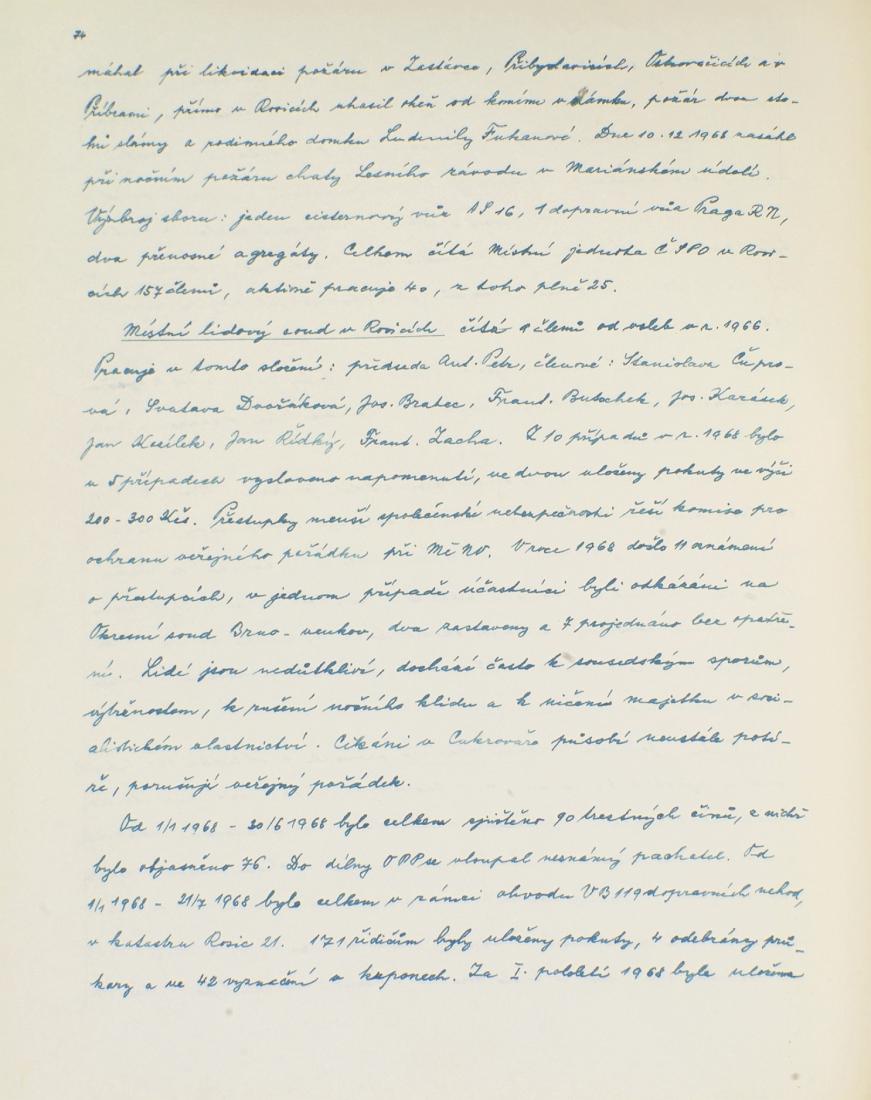 74
máhal při likvidaci požáru v Zastávce, Přibyslavicích, Ostrovačicích a v
Příbrami, přímo v Rosicích uhasil oheň od komína v zámku, požár dvou sto-
hů slámy a rodinného domku Ludmily Fukanové. Dne 10.12 1968 zasáhl
při nočním požáru chaty Lesního závodu v Mariánském údolí.
Výzbroj sboru: jeden cisternový vůz AS 16, 1 dopravní vůz Praga RN,
dva přenosné agregáty. Celkem čítá Místní jednota ČSPO v Rosi-
cích 157 členů, aktivně pracuje 40, z toho plně 25.
Místní lidový soud v Rosicích čítá 9 členů od voleb v r. 1966.
Pracuje v tomto složení: předseda Ant. Petr, členové: Stanislava Čupro-
vá, Svatava Dvořáková, Jos. Bratec, Frant. Butschek, Jos. Karásek,
Jan Kozílek, Jan Řídký, Frant. Zacha. Z 10 případů v r. 1968 bylo
v 5 případech vysloveno napomenutí, ve dvou uloženy pokuty ve výši
200 - 300 Kčs. Přestupky menší společenské nebezpečnosti řeší komise pro
ochranu veřejného pořádku při MěNV. V roce 1968 došlo 11 oznámení
o přestupcích, v jednom případě účastníci byli odkázáni na
Okresní soud Brno - venkov, dva zastaveny a 7 projednáno bez opatře-
ní. Lidé jsou nedůtkliví, dochází často k sousedským sporům,
výtržnostem, k rušení nočního klidu a k ničení majetku v soci-
alistickém vlastnictví. Cikáni v Cukrovaře působí neustále potí-
že, porušují veřejný pořádek.
Od 1/1 1968 - 30/6 1968 bylo celkem zjištěno 90 trestných činů, z nichž
bylo objasněno 76. Do dílny OPP se vloupal neznámý pachatel. Od
1/1 1968 - 21/7 1968 bylo celkem v rámci obvodu VB 119 dopravních nehod,
v katastru Rosic 21. 171 řidičům byly uloženy pokuty, 4 odebrány prů-
kazy a ve 42 vyznačení v kuponech. Za I. pololetí 1968 byla uložena